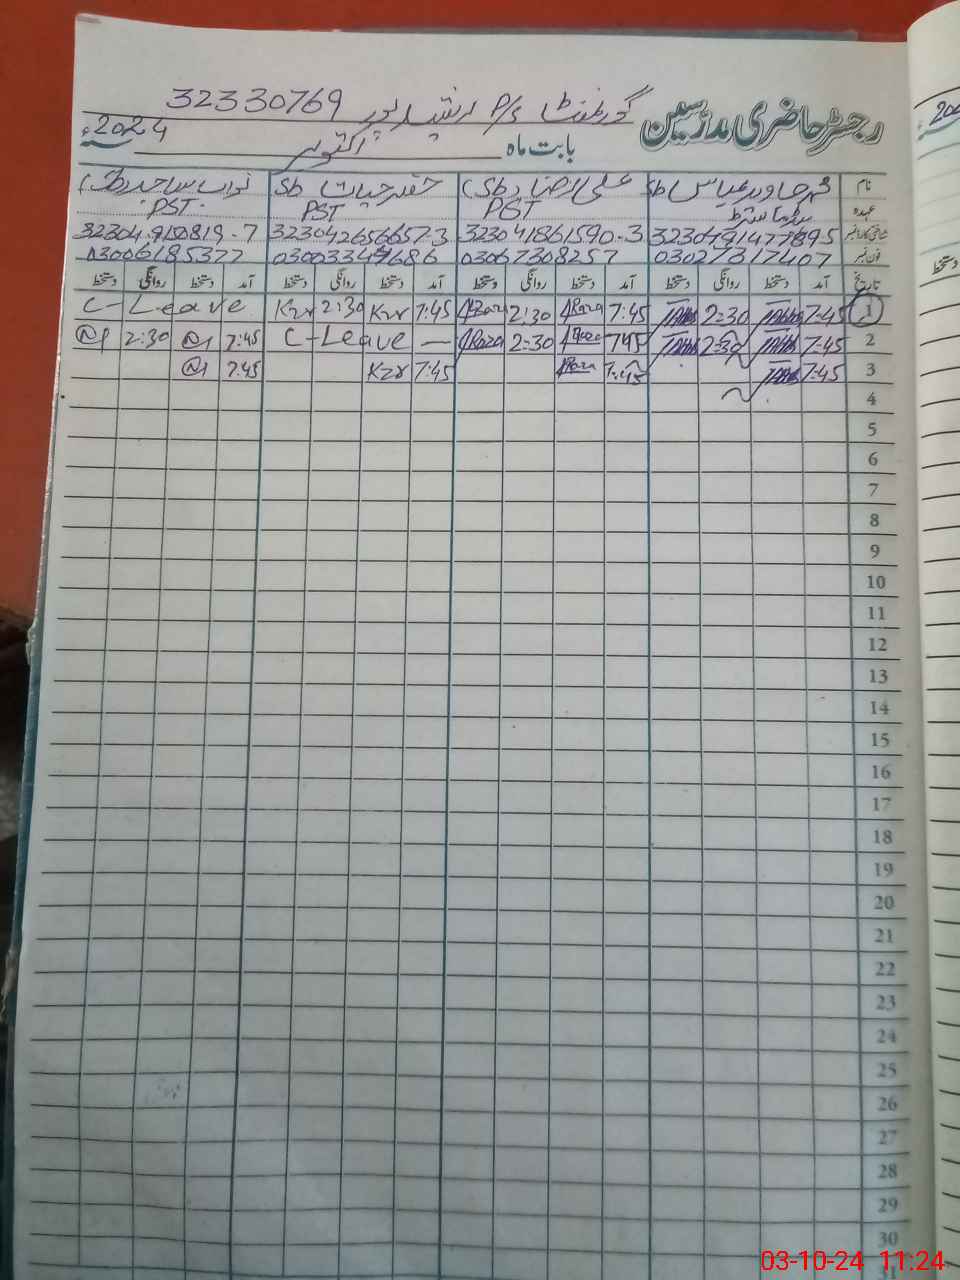 رجسٹر حاضری مدرسین گورنمنٹ P/S رشید پور 32330769
بابت ماہ اکتوبر 2024ء
نام محمد جاوید عباس Sb علی رضا (Sb حیات Sb نواب ساجد
عہدہ PST PST PST
شناختی کارڈ نمبر 32304-9147789-5 323041861590-3 323042656657-3 32304-9150819-7
فون نمبر 03027317407 03067308257 03003347686 03006185377
تاریخ آمد دستخط روانگی دستخط آمد دستخط روانگی دستخط آمد دستخط روانگی دستخط آمد دستخط روانگی دستخط
1 7:45 TAbbas 2=30 TAbbas 7:45 ARaza 2:30 ARaza 7:45 Kzr 2:30 Kzr C-Leave
2 7:45 TAbbas 2=30 TAbbas 7:45 ARaza 2=30 ARaza C-Leave — 7:45 2:30
3 7:45 TAbbas 7:45 ARaza 7:45 Kzr 7:45
4
5
6
7
8
9
10
11
12
13
14
15
16
17
18
19
20
21
22
23
24
25
26
27
28
29
30
03-10-24 11:24